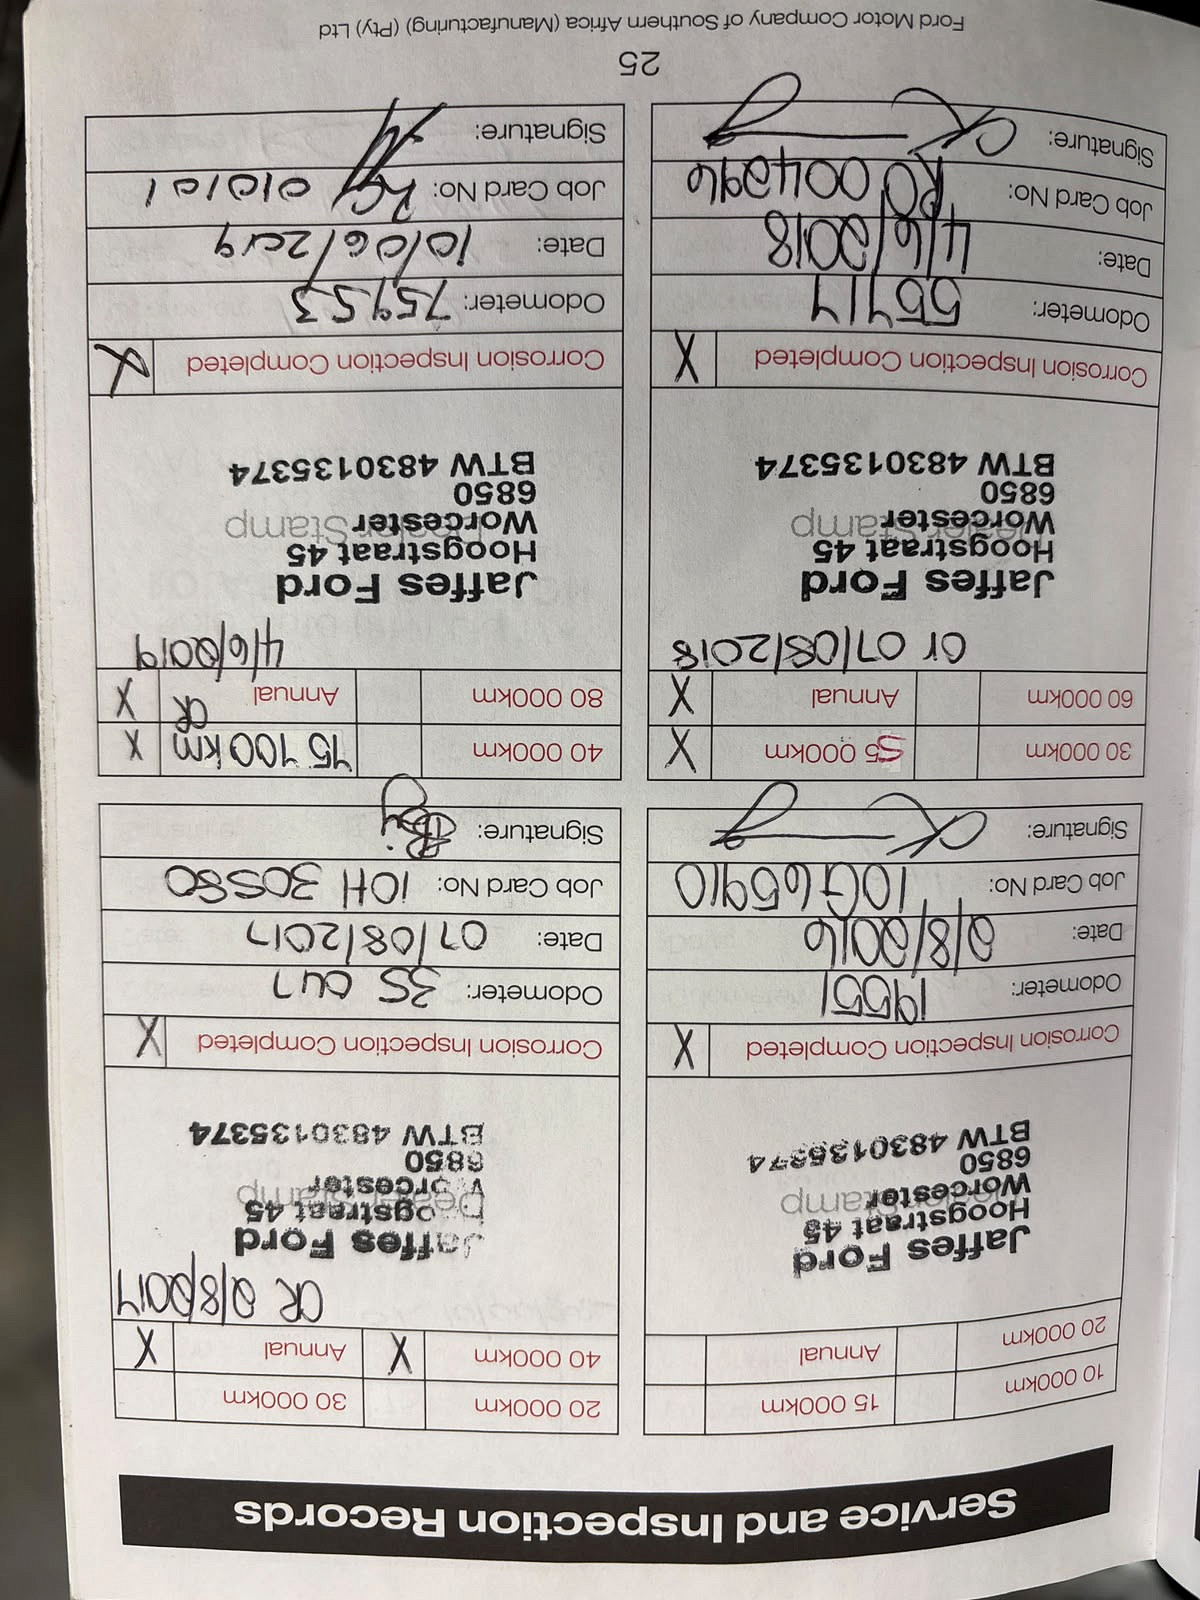 Service and Inspection Records
10 000km 15 000km
20 000km Annual
Dealer Stamp
Jaffes Ford
Hoogstraat 45
Worcester
6850
BTW 4830135374
Corrosion Inspection Completed X
Odometer: 19551
Date: 2/8/2016
Job Card No: 10G65910
Signature:
20 000km 30 000km
40 000km X Annual X
OR 2/8/2017
Dealer Stamp
Jaffes Ford
Hoogstraat 45
Worcester
6850
BTW 4830135374
Corrosion Inspection Completed X
Odometer: 35 047
Date: 07/08/2017
Job Card No: 10H 30580
Signature:
30 000km 55 000km X
60 000km Annual X
Or 07/08/2018
Dealer Stamp
Jaffes Ford
Hoogstraat 45
Worcester
6850
BTW 4830135374
Corrosion Inspection Completed X
Odometer: 55717
Date: 4/6/2018
Job Card No: RO 004296
Signature:
40 000km 75 700km X
80 000km Annual OR X
4/6/2019
Dealer Stamp
Jaffes Ford
Hoogstraat 45
Worcester
6850
BTW 4830135374
Corrosion Inspection Completed X
Odometer: 75953
Date: 10/06/2019
Job Card No:
Signature:
25
Ford Motor Company of Southern Africa (Manufacturing) (Pty) Ltd